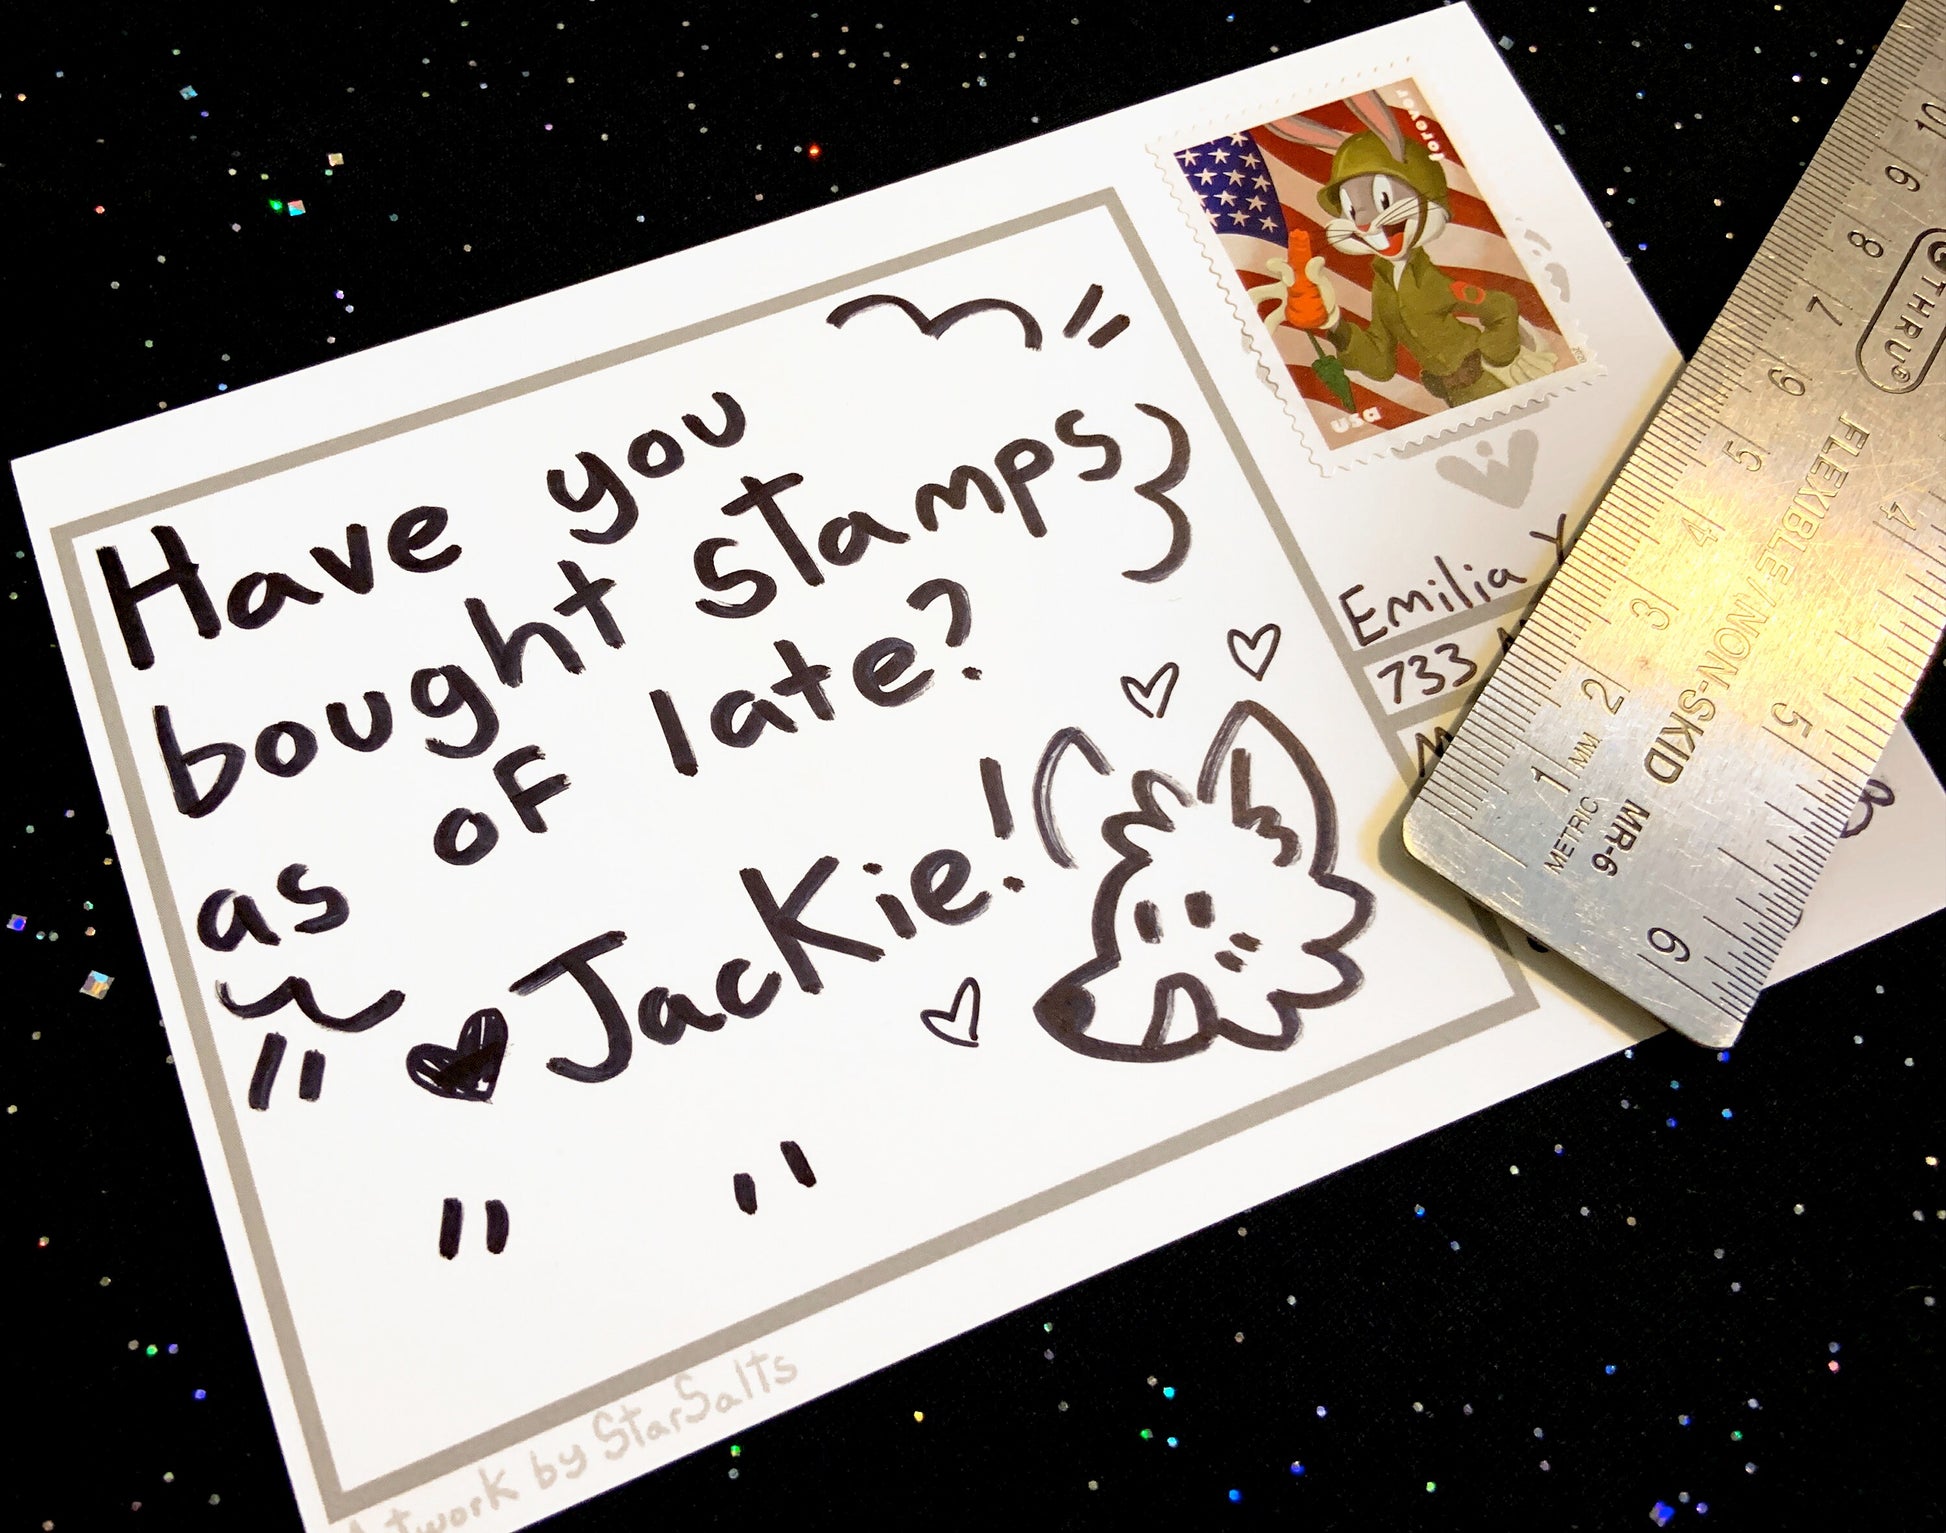 Have you
bought stamps
as of late?
Jackie!
Artwork by StarSalts
forever
USA
Emilia Y
733
THRU
FLEXIBLE/NON-SKID
METRIC MR-6
MM
1 2 3 4 5 6 7 8 9 10
4 5 6